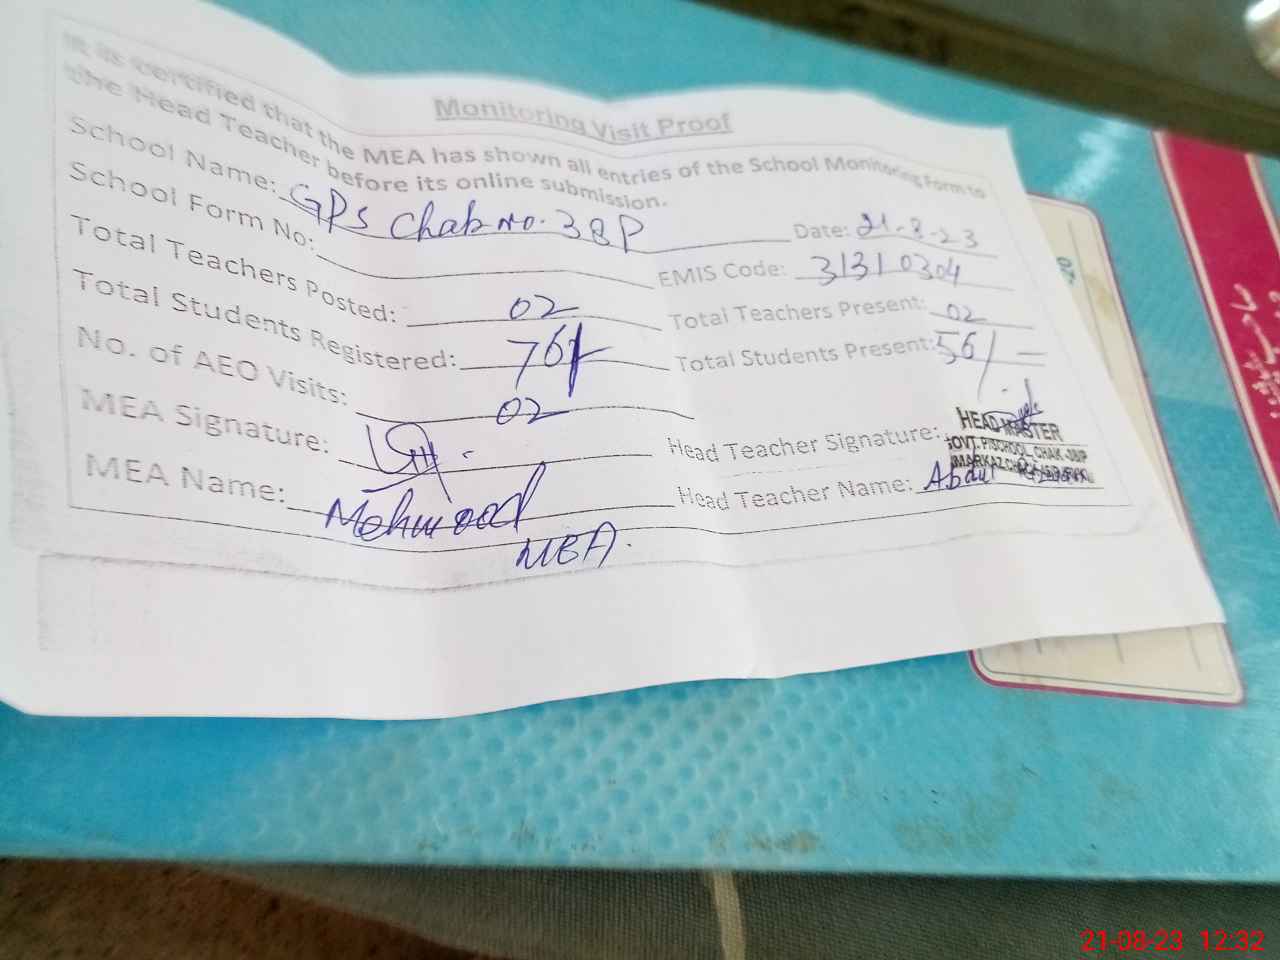 Monitoring Visit Proof
It is certified that the MEA has shown all entries of the School Monitoring Form to
the Head Teacher before its online submission.
School Name: GPS Chak No. 38P Date: 21-8-23
School Form No: EMIS Code: 31310304
Total Teachers Posted: 02 Total Teachers Present: 02
Total Students Registered: 76/- Total Students Present: 56/-
No. of AEO Visits: 02
MEA Signature: Head Teacher Signature:
HEAD MASTER
GOVT. P/SCHOOL CHAK
MARKAZ
MEA Name: Mehmood Head Teacher Name: Abdul
MEA.
21-08-23 12:32